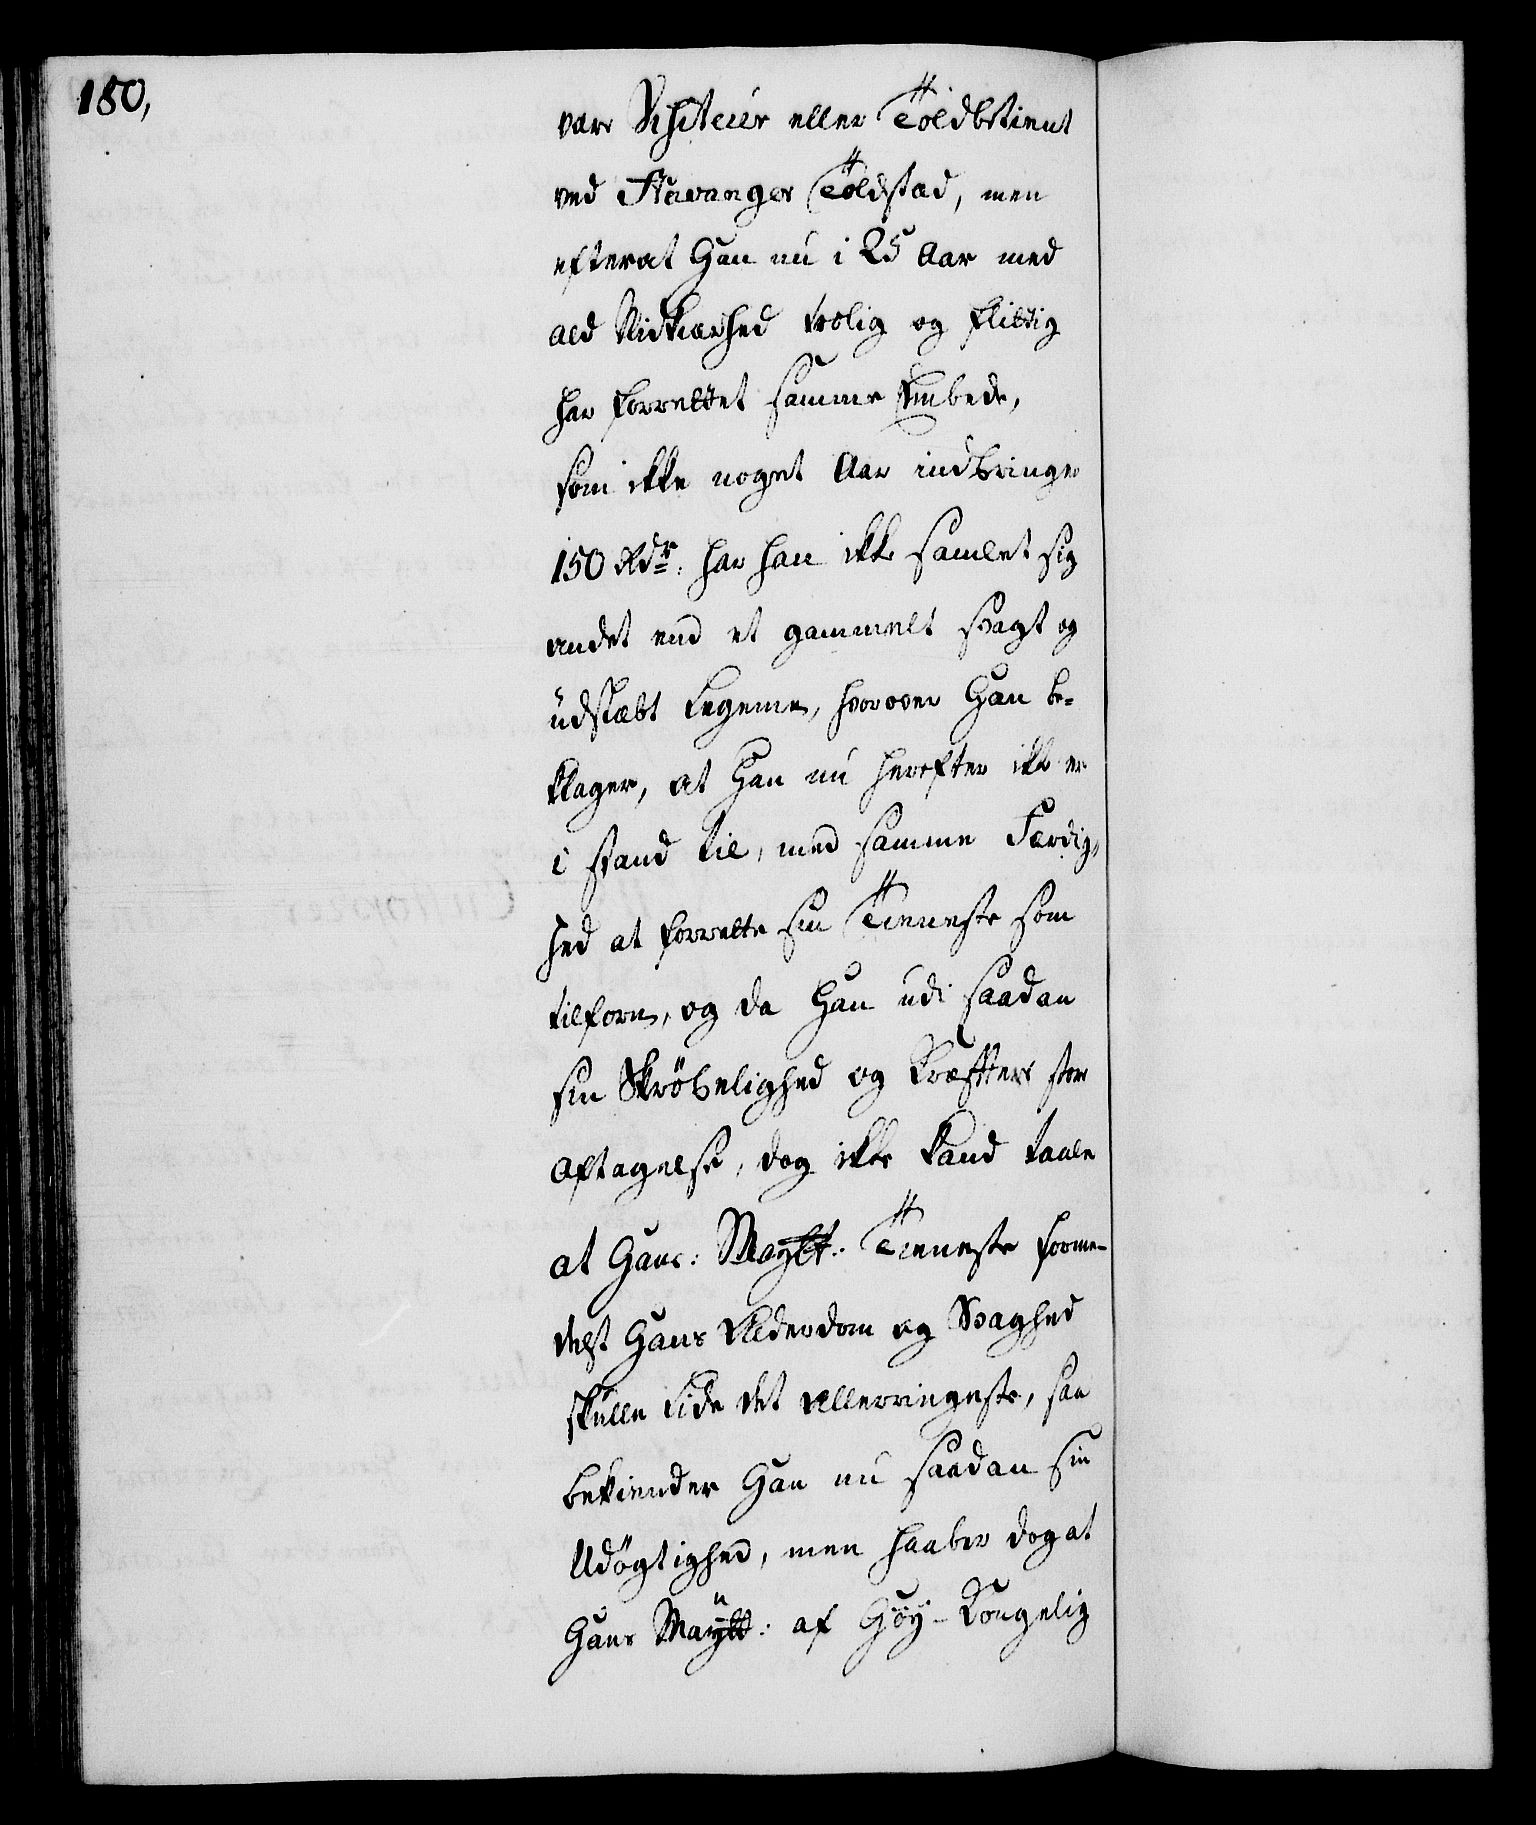 180,
vær Visiteur eller Toldbetient
ved Stavanger Toldstæd, men
efterat Han nu i 25 Aar med
ald Nidkærhed trolig og flittig
har forrettet samme Embede,
som ikke noget Aar indbringe
150 Rdr: har han ikke samlet sig
andet end et gammelt svagt og
udslæbt Legeme, hvorover Han be-
klager, at Han nu herefter ikke er
i stand til, med samme Færdig,
hed at forrette sin Tieneste som
tilforn, og da Han udi saadan
sin Skröbelighed og Kræffters stor
Aftagelse, dog ikke kand taale
at Hans: Maytt: Tieneste forme-
delst Hans Alderdom og Svaghed
skulle lide det allerringeste, saa
bekiender Han nu saadan sin
Udögtighed, men haaber dog at
Hans Maytt: af Höy-Kongelig